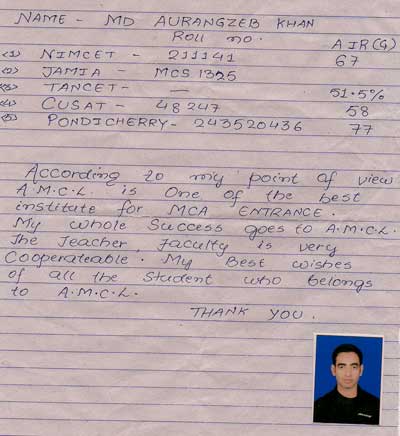 NAME - MD AURANGZEB KHAN
Roll no. AIR(G)
(1) NIMCET - 211141 67
(2) JAMIA - MCS 1325
(3) TANCET - — 51.5%
(4) CUSAT - 48247 58
(5) PONDICHERRY - 243520436 77
According to my point of view
A.M.C.L. is One of the best
institute for MCA ENTRANCE.
My whole Success goes to A.M.C.L.
The Teacher, faculty is very
Cooperateable. My Best wishes
of all the Student who belongs
to A.M.C.L.
THANK YOU.